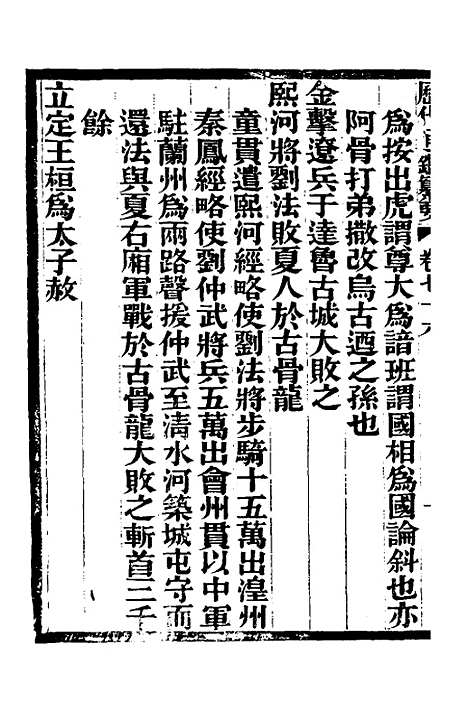 爲按出虎謂尊大爲諳班謂國相爲國論斜也亦
阿骨打弟撒改烏古迺之孫也
金擊遼兵于達魯古城大敗之
熙河將劉法敗夏人於古骨龍
童貫遣熙河經略使劉法將步騎十五萬出湟州
秦鳳經略使劉仲武將兵五萬出會州貫以中軍
駐蘭州爲兩路聲援仲武至清水河築城屯守而
還法與夏右廂軍戰於古骨龍大敗之斬首三千
餘
立定王桓爲太子赦